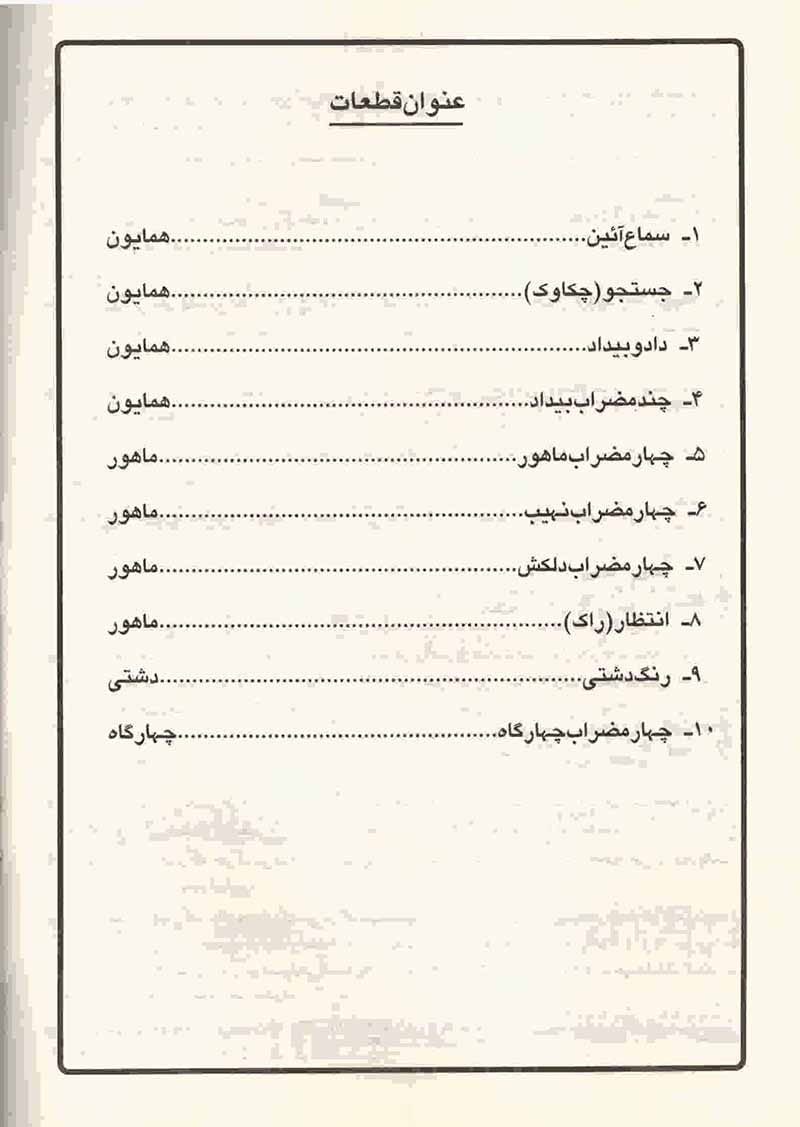 عنوان قطعات
۱ـ سماع آئین......................................................همایون
۲ـ جستجو (چکاوک)..............................................همایون
۳ـ داد و بیداد......................................................همایون
۴ـ چند مضراب بیداد..............................................همایون
۵ـ چهار مضراب ماهور..............................................ماهور
۶ـ چهار مضراب نهیب..............................................ماهور
۷ـ چهار مضراب دلکش..............................................ماهور
۸ـ انتظار (راک)....................................................ماهور
۹ـ رنگ دشتی......................................................دشتی
۱۰ـ چهار مضراب چهارگاه..........................................چهارگاه